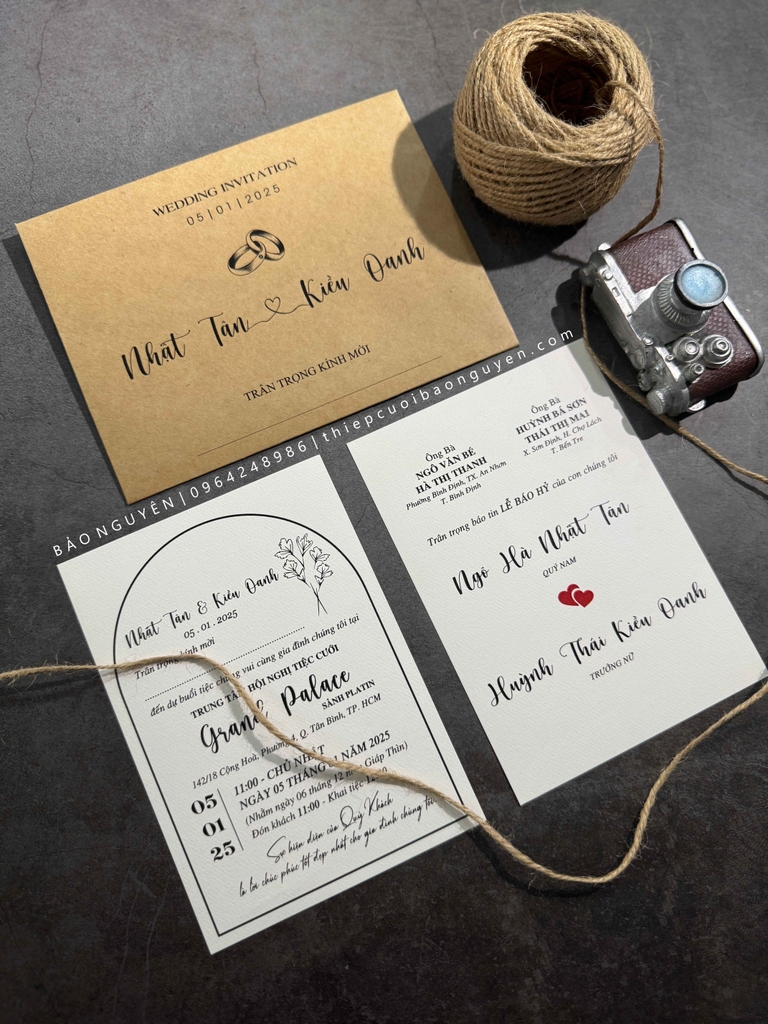 WEDDING INVITATION
05|01|2025
Nhật Tân Kiều Oanh
TRÂN TRỌNG KÍNH MỜI
BẢO NGUYÊN|0964248986|thiepcuoibaonguyen.com
Ông Bà
NGÔ VĂN BÉ
HÀ THỊ THANH
Phường Bình Định, TX. An Nhơn
T. Bình Định
Ông Bà
HUỲNH BÁ SƠN
THÁI THỊ MAI
X. Sơn Định, H. Chợ Lách
T. Bến Tre
Trân trọng báo tin LỄ BÁO HỶ của con chúng tôi
Ngô Hà Nhật Tân
QUÝ NAM
Huỳnh Thái Kiều Oanh
TRƯỞNG NỮ
Nhật Tân & Kiều Oanh
05.01.2025
Trân trọng kính mời
đến dự buổi tiệc chung vui cùng gia đình chúng tôi tại
TRUNG TÂM HỘI NGHỊ TIỆC CƯỚI
Grand Palace
SẢNH PLATIN
142/18 Cộng Hoà, Phường 4, Q. Tân Bình, TP. HCM
05
01
25
11:00 - CHỦ NHẬT
NGÀY 05 THÁNG 01 NĂM 2025
(Nhằm ngày 06 tháng 12 năm Giáp Thìn)
Đón khách 11:00 - Khai tiệc
Sự hiện diện của Quý Khách
là lời chúc phúc tốt đẹp nhất cho gia đình chúng tôi